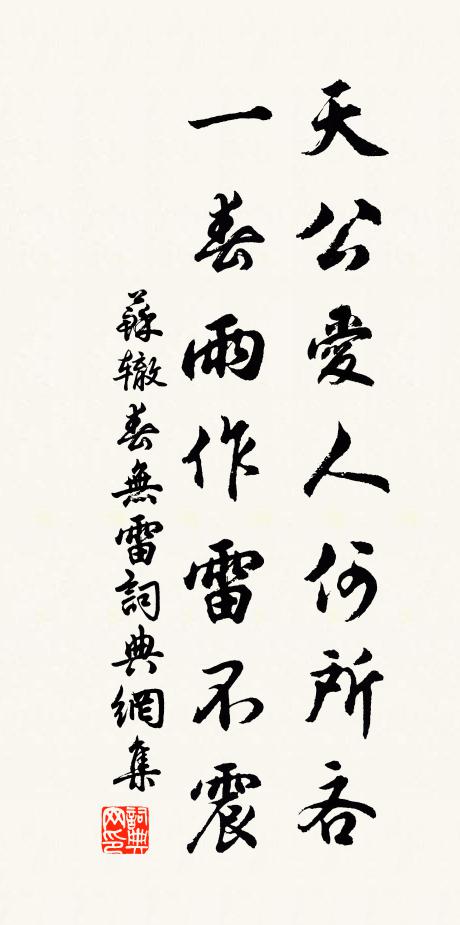 天公愛人何所吝
一春雨作雷不震
蘇辙春無雷詞典網集
詞典網印